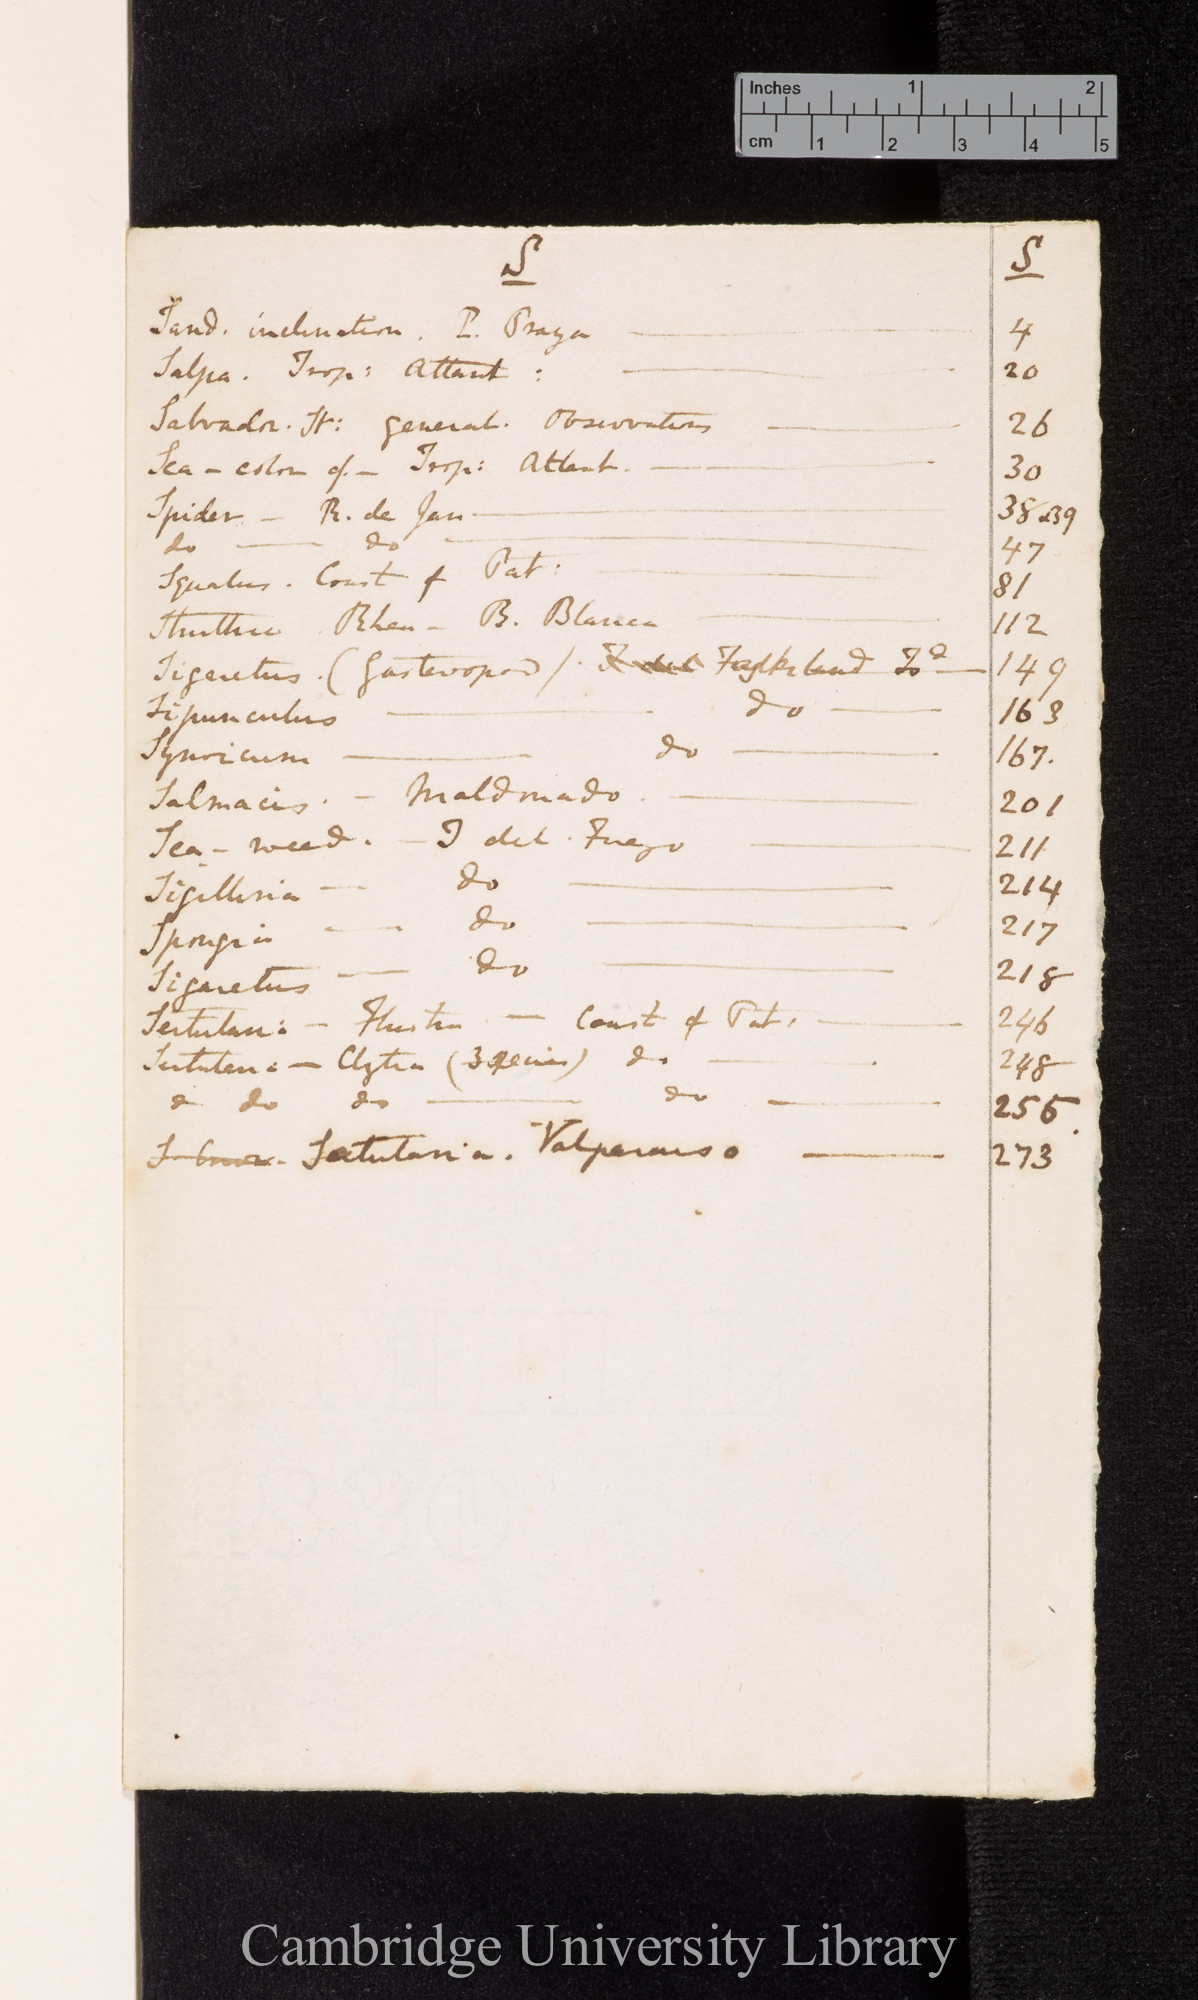 Inches 1 2
cm 1 2 3 4 5
S S
Sand. inclination. P. Praya 4
Salpa. Trop: Atlant: 20
Salvador. St: general. Observations 26
Sea - color of - Trop: Atlant. 30
Spider - R. de Jan 38..39
do do 47
Squalus. Coast of Pat: 81
Struthio Rhea - B. Blanca 112
Sigaretus. (Gasteropod). T. del Falkland Is 149
Sipunculus do 163
Synoicum do 167.
Salmacis. - Maldonado. 201
Sea - weed. - T del Fuego 211
Sigillina do 214
Spongia do 217
Sigaretus do 218
Sertularia - Flustra - Coast of Pat: 246
Sertularia - Clytia (3 species) do 248
do do do 256.
Sertularia. Valparaiso 273
Cambridge University Library